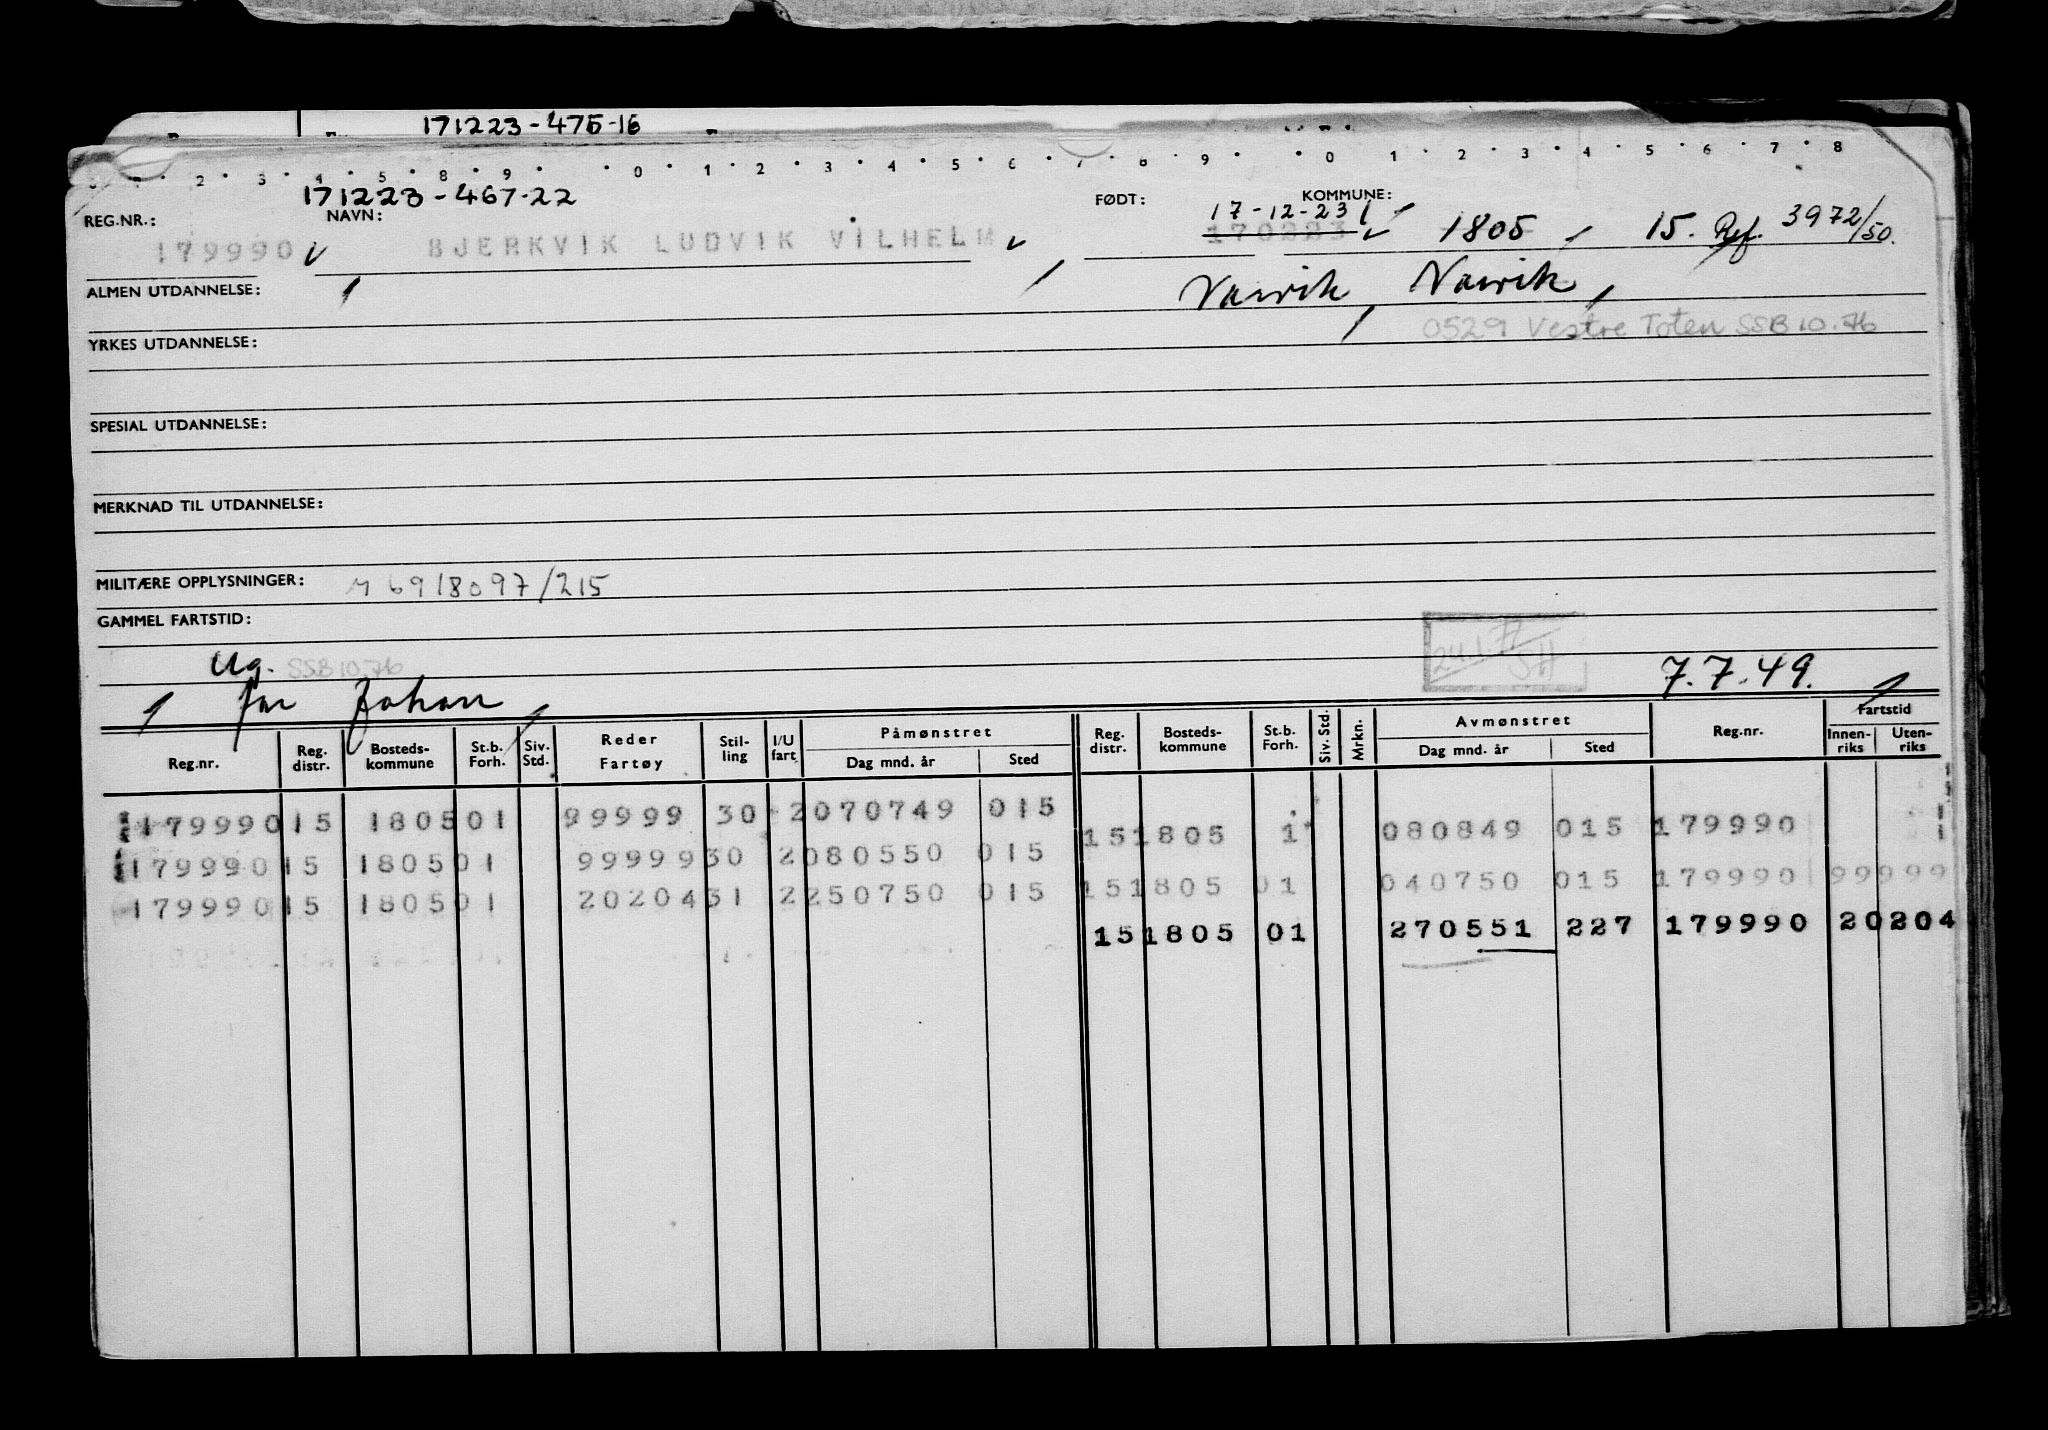 171223-475-16
2 3 4 5 8 9 0 1 2 3 4 5 6 7 8 9 0 1 2 3 4 5 6 7 8
171223-467-22
REG.NR.: NAVN: FØDT: KOMMUNE:
17-12-23
179990 BJERKVIK LUDVIK VILHELM 170223 1805 15. Ref. 3972/50.
ALMEN UTDANNELSE: Narvik Narvik
0529 Vestre Toten SSB 10.76
YRKES UTDANNELSE:
SPESIAL UTDANNELSE:
MERKNAD TIL UTDANNELSE:
MILITÆRE OPPLYSNINGER: M 6918097/215
GAMMEL FARTSTID:
Ug. SSB 10.76
far Johan 7.7.49.
Reg.nr. Reg. distr. Bosteds- kommune St.b. Forh. Siv. Std. Reder Fartøy Stil- ling I/U fart Påmønstret Dag mnd. år Sted Reg. distr. Bosteds- kommune St.b. Forh. Siv. Std. Mrkn. Avmønstret Dag mnd. år Sted Reg.nr. Fartstid Innen- riks Uten- riks
179990 15 1805 01 99999 30 2 070749 015
15 1805 1 080849 015 179990
179990 15 1805 01 99999 30 2 080550 015
15 1805 01 040750 015 179990 99999
179990 15 1805 01 20204 31 2 250750 015
15 1805 01 270551 227 179990 20204